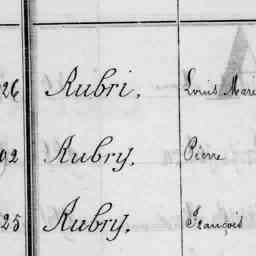 26 Aubri. Louis Mari
92 Aubry. Pierre
25 Aubry. François